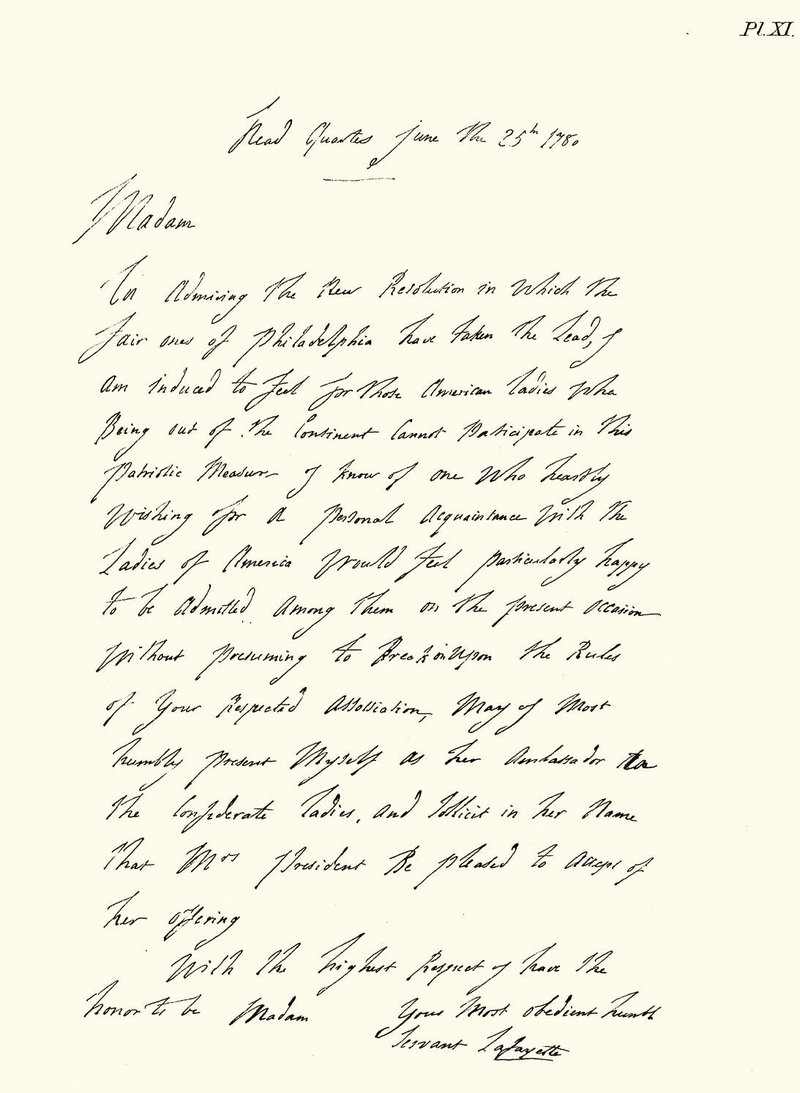 Pl. XI.
Head Quartes June the 25th 1780
Madam
In Admiring the New Resolution in Which the
fair ones of Philadelphia have taken the Lead, I
am induced to feel for those American Ladies who
Being out of the Continent Cannot Participate in this
Patriotic Measure I know of one who heartly
Wishing for a Personal Acquaintance With the
Ladies of America Would feel particularly happy
to be Admitted Among them on the present occasion
Without presuming to Break in Upon the Rules
of Your Respected Assossiation, May I Most
humbly present Myself as her Ambassador to
the Confederate Ladies, and Sollicit in her Name
that Mrs President Be pleased to accept of
her offering
With the highest Respect I have the
honor to be Madam Your Most obedient humb
Servant Lafayette